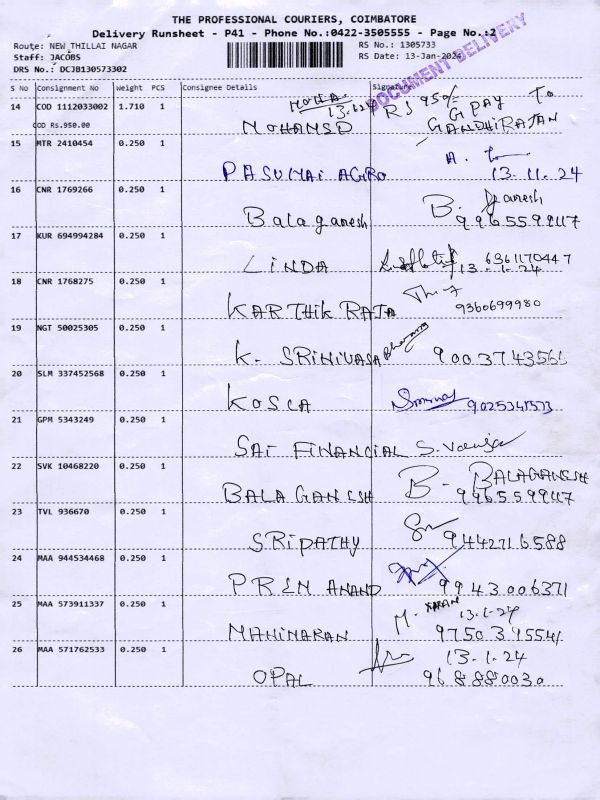 THE PROFESSIONAL COURIERS, COIMBATORE
Delivery Runsheet - P41 - Phone No.:0422-3505555 - Page No.:2
Route: NEW THILLAI NAGAR
RS No.: 1305733
Staff: JACOBS
RS Date: 13-Jan-2024
DRS No.: DCJB130573302
DOCUMENT DELIVERY
S No Consignment No Weight PCS Consignee Details Signature
14 COD 1112033002 1.710 1
COD Rs.950.00
RS 950/- G PAY TO
MOHAMSD GANDHIRAJAN
15 MTR 2410454 0.250 1
PASUMAI AGRO 13.11.24
16 CNR 1769266 0.250 1
Balaganesh B. Ganesh
9965599117
17 KUR 694994284 0.250 1
LINDA 6361170447
13-1-24
18 CNR 1768275 0.250 1
KARTHIK RAJA 9360699980
19 NGT 50025305 0.250 1
K. SRINIVASA
20 SLM 337452568 0.250 1
KOSCA
21 GPM 5343249 0.250 1
SAI FINANCIAL
22 SVK 10468220 0.250 1
BALA GANESH B- BALAGANESH
9965599117
23 TVL 936670 0.250 1
SRIPATHY 9442716588
24 MAA 944534468 0.250 1
PREM ANAND 9943006371
25 MAA 573911337 0.250 1
13-1-24
MAHIMARAN
26 MAA 571762533 0.250 1
13.1.24
OPAL 968880030